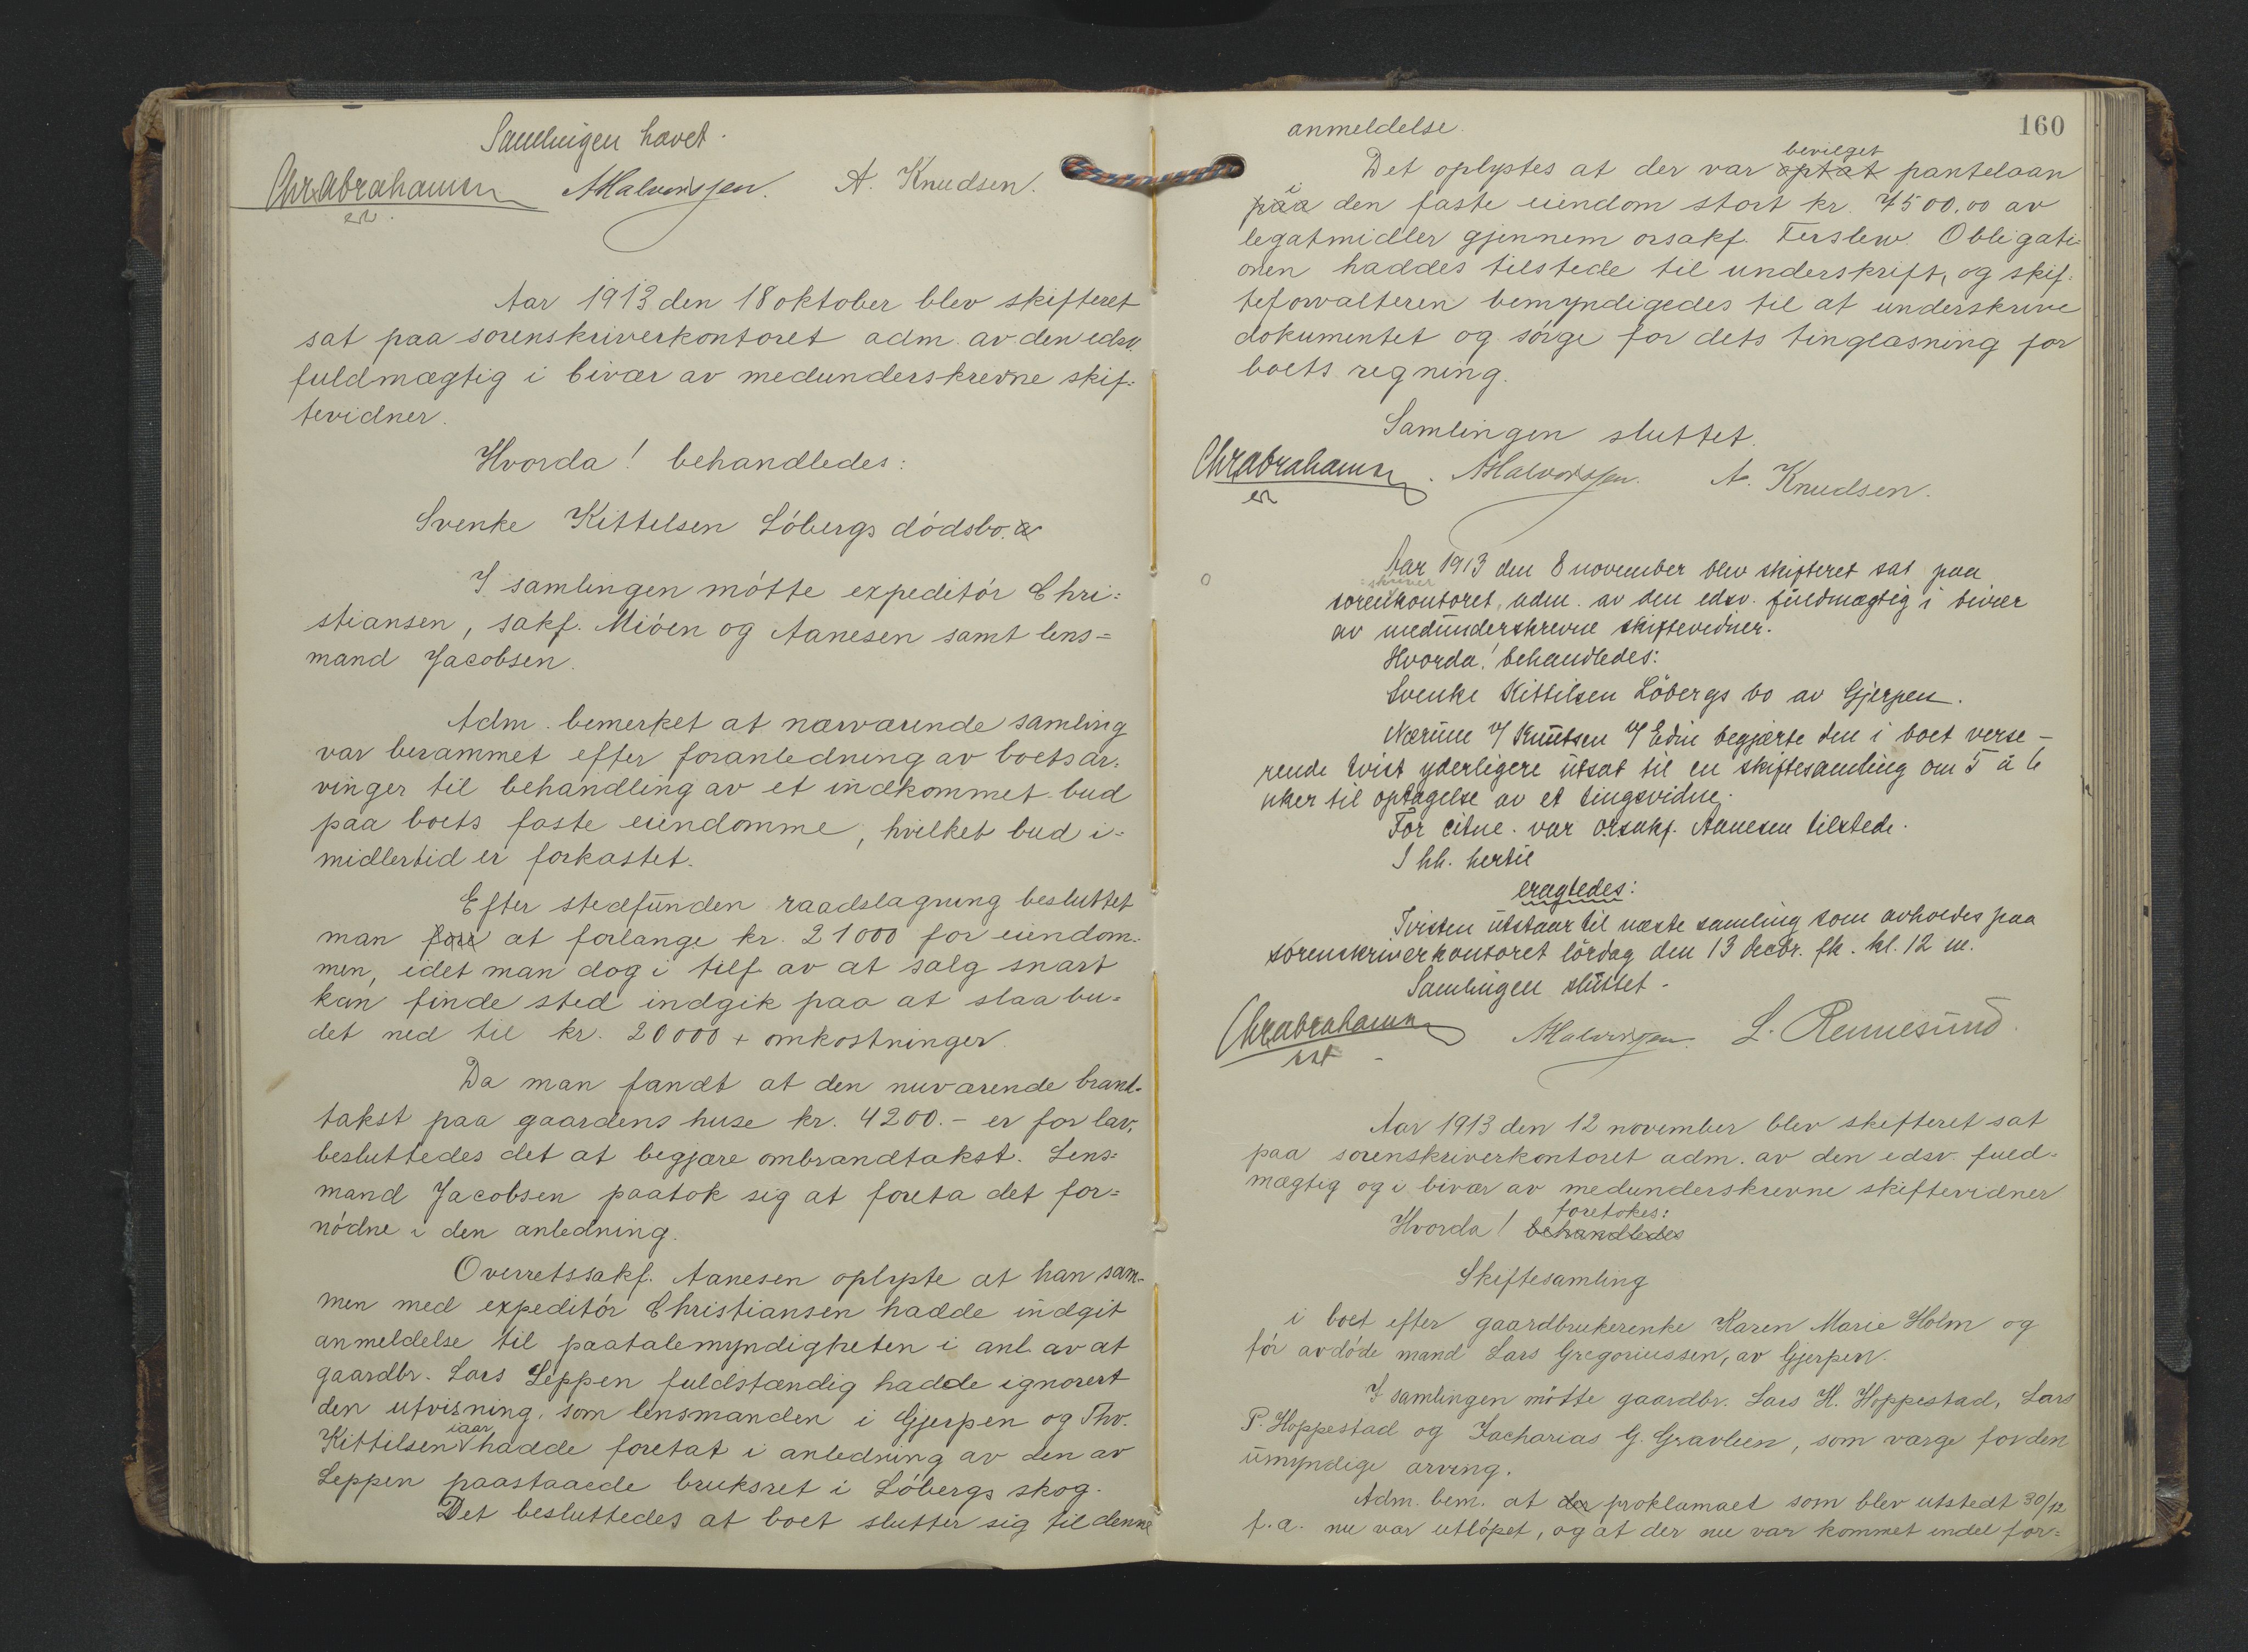 Samlingen hævet.
Chr Abrahamsen AHalvorsen. A. Knudsen.
Aar 1913 den 18 oktober blev skifteret
sat paa sorenskriverkontoret adm. av den edsv.
fuldmægtig i bivær av medunderskrevne skif-
tevidner.
Hvorda! behandledes:
Svenke Kittelsen Löbergs dödsbo.
I samlingen mötte expeditör Chri-
stiansen, sakf. Miöen og Aanesen samt lens-
mand Jacobsen.
Adm. bemerket at nærværende samling
var berammet efter foranledning av boets ar-
vinger til behandling av et indkommet bud
paa boets faste eiendomme, hvilket bud i-
midlertid er forkastet.
Efter stedfunden raadslagning besluttet
man at forlange kr. 21000 for eiendom-
men, idet man dog i tilf. av at salg snart
kan finde sted indgik paa at slaa bu-
det ned til kr. 20000 + omkostninger.
Da man fandt at den nuværende brand-
takst paa gaardens huse kr. 4200.- er for lav,
besluttedes det at begjære ombrandtakst. Lens-
mand Jacobsen paatok sig at foreta det for-
nödne i den anledning.
Overretssakf. Aanesen oplyste at han sam-
men med expeditör Christiansen hadde indgit
anmeldelse til paatalemyndigheten i anl. av at
gaardbr. Lars Leppen fuldstændig hadde ignorert
den utvisning, som lensmanden i Gjerpen og Thv.
Kittilsen iaar hadde foretat i anledning av den av
Leppen paastaaede bruksret i Löbergs skog.
Det besluttedes at boet slutter sig til denne
160
anmeldelse.
Det oplystes at der var optat bevilget pantelaan
paa i den faste eiendom stort kr. 7500.00 av
legatmidler gjennem orsakf. Ferslew. Obligati-
onen haddes tilstede til underskrift, og skif-
teforvalteren bemyndigedes til at underskrive
dokumentet og sörge for dets tinglæsning for
boets regning.
Samlingen sluttet.
Chr Abrahamsen. AHalvorsen. A. Knudsen.
Aar 1913 den 8 november blev skifteret sat paa
sorenskriverkontoret, adm. av den edsv. fuldmægtig i bivær
av medunderskrevne skiftevidner.
Hvorda! behandledes:
Svenke Kittilsen Löbergs bo av Gjerpen.
Knutsen begjærte den i boet verse-
rende tvist yderligere utsat til en skiftesamling om 5 a 6
uker til optagelse av et tingsvidne.
For citne. var orsakf. Aanesen tilstede.
I hh. hertil
eragtedes:
Tvisten utstaar til næste samling som avholdes paa
sorenskriverkontoret lördag den 13 decbr. fk. kl. 12 m.
Samlingen sluttet.
Chr Abrahamsen AHalvorsen. L. Rennesund.
Aar 1913 den 12 november blev skifteret sat
paa sorenskriverkontoret adm. av den edsv. fuld-
mægtig og i bivær av medunderskrevne skiftevidner
Hvorda! behandledes foretokes:
Skiftesamling
i boet efter gaardbrukerenke Karen Marie Holm og
för avdöde mand Lars Gregoriussen, av Gjerpen.
I samlingen mötte gaardbr. Lars H. Hoppestad, Lars
P. Hoppestad og Zacharias G. Gravlien, som værge for den
umyndige arving.
Adm. bem. at der proklamaet som blev utstedt 30/12
f.a. nu var utlöpet, og at der nu var kommet endel for-